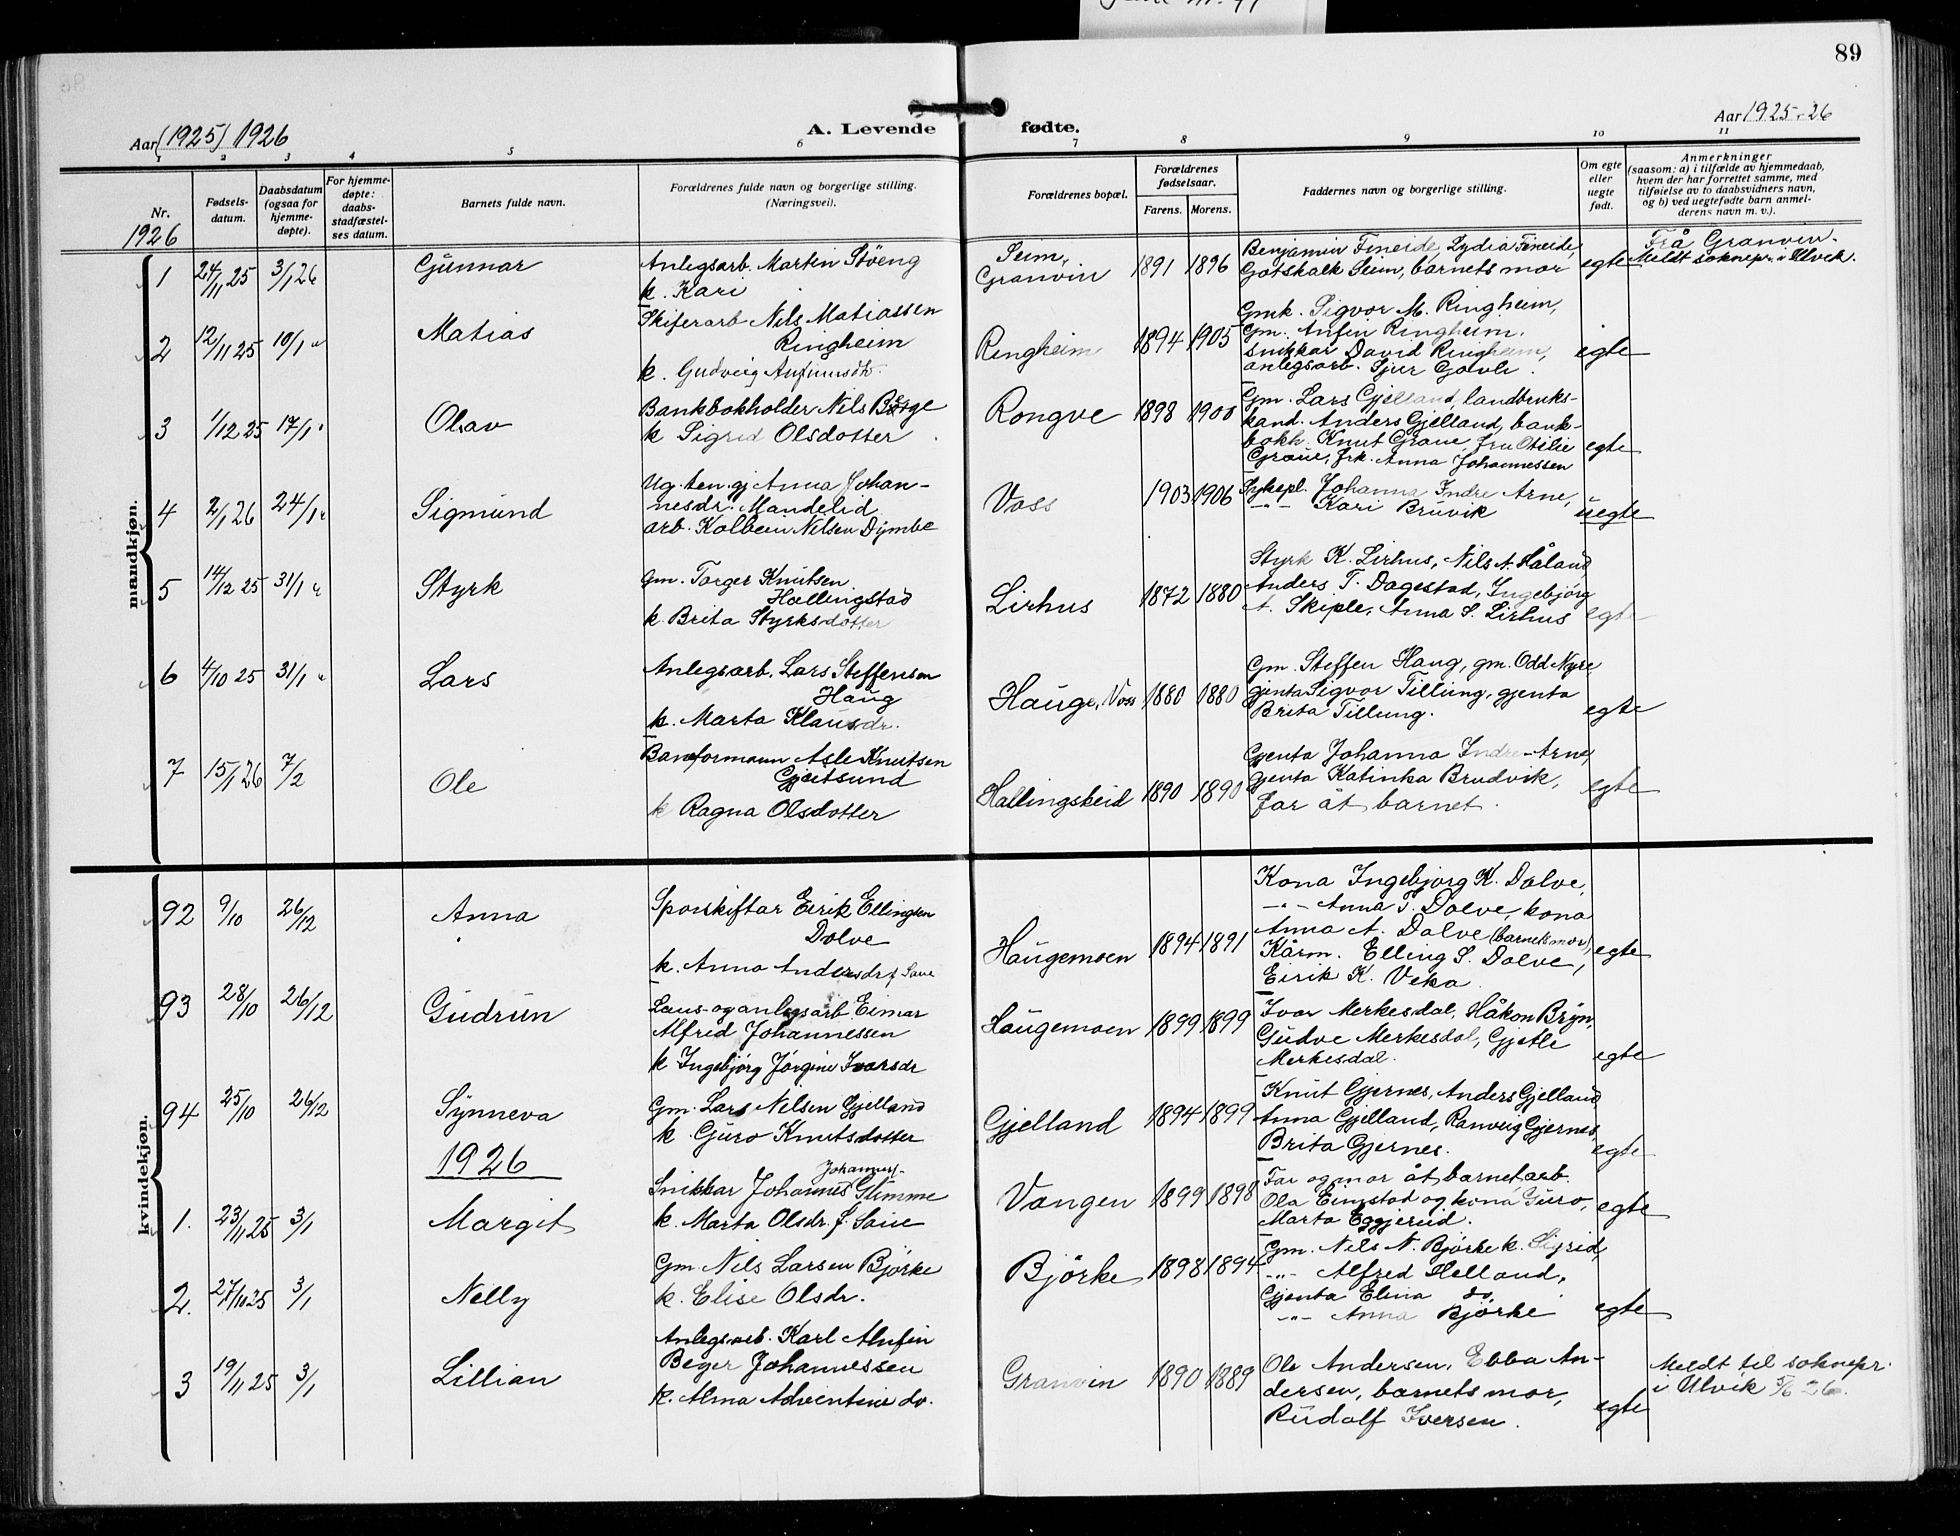 89
Aar (1925) 1926
A. Levende fødte.
Aar 1925-26
1 2 3 4 5 6 7 8 9 10 11
Nr.
1926
Fødsels-
datum.
Daabsdatum
(ogsaa for
hjemme-
døpte).
For hjemme-
døpte:
daabs-
stadfæstel-
ses datum.
Barnets fulde navn.
Forældrenes fulde navn og borgerlige stilling.
(Næringsvei).
Forældrenes bopæl.
Forældrenes
fødselsaar.
Farens. Morens.
Faddernes navn og borgerlige stilling.
Om egte
eller
uegte
født.
Anmerkninger
(saasom: a) i tilfælde av hjemmedaab,
hvem der har forrettet samme, med
tilføielse av to daabsvidners navn,
og b) ved uegtefødte barn anmel-
derens navn m. v.).
mandkjøn.
1 24/11 25 3/1 26 Gunnar
Anlegsarb. Martin Støeng
k. Kari
Seim,
Granvin
1891 1896
Benjamin Fineide, Lydia Fineide,
Gotskalk Seim, barnets mor
egte
Frå Granvin.
Meldt soknepr. i Ulvik.
2 12/11 25 10/1 " Matias
Skiferarb Nils Matiassen
Ringheim
k. Gudveig Anfinnsdr.
Ringheim
1894 1905
Gmk. Sigvor M. Ringheim,
Gm. Anfin Ringheim,
snikkar David Ringheim,
anlegsarb. Sjur
egte
3 1/12 25 17/1 " Olav
Bankbokholder Nils Børge
k Sigrid Olsdotter
Rongve
1898 1900
Gm. Lars Gjelland, landbruks-
kand. Anders Gjelland, bank-
bokh. Knut Graue, fru Otilie
Graue, frk. Anna Johannessen
egte
4 2/1 26 24/1 " Sigmund
Ug. ten. gj Anna Johan-
nesdr. Mandelid
arb. Kolbein Nilsen Dymbe
Voss
1903 1906
Sykepl. Johanna Indre Arne,
-"- Kari Bruvik
uegte
5 14/12 25 31/1 " Styrk
Gm. Torger Knutsen
Hallingstad
k. Brita Styrksdotter
Lirhus
1872 1880
Styrk K. Lirhus, Nils A. Håland,
Anders T. Dagestad, Ingebjørg
A. Skiple, Anna S. Lirhus
egte
6 4/10 25 31/1 " Lars
Anlegsarb. Lars Steffensen
Haug
k. Marta Klausdr.
Hauge, Voss
1880 1880
Gm. Steffen Haug, gm. Odd Nyre,
gjenta Sigvor Tillung, gjenta
Brita Tillung.
egte
7 15/1 26 7/2 Ole
Baneformann Asle Knutsen
Gjeitsund
k Ragna Olsdotter
Hallingskeid
1890 1890
Gjenta Johanna Indre-Arne,
gjenta Katinka Brudvik,
far åt barnet.
egte
kvindekjøn.
92 9/10 26/12 Anna
Sporskiftar Eirik Ellingsen
Dolve
k. Anna Andersdr f Saue
Haugemoen
1894 1891
Kona Ingebjørg K. Dolve,
-"- Anna T. Dolve, kona
Anna A. Dolve (barnets mor),
Kårm. Elling S. Dolve,
Eirik K. Veka.
egte
93 28/10 26/12 Gudrun
Laus- og anlegsarb. Eimar
Alfred Johannessen
k Ingebjørg Jørgine Ivarsdr
Haugemoen
1899 1899
Ivar Merkesdal, Håkon Bryn,
Gudve Merkesdal, Gjetle
Merkesdal.
egte
94 25/10 26/12 Synneva
Gm. Lars Nilsen Gjelland
k. Guro Knutsdotter
Gjelland
1894 1899
Knut Gjernes, Anders Gjelland,
Anna Gjelland, Ranveig Gjernes,
Brita Gjernes.
egte
1926
1. 23/11 25 3/1 Margit
Johannes-
Snikkar Johannes Glimme
k. Marta Olsdr. f. Saue
Vangen
1899 1898
Far og mor åt barnet, arb.
Ola Eimstad og kona Guro,
Marta Eggjerud.
egte
2. 27/10 25 3/1 Nelly
Gm. Nils Larsen Bjørke
k. Elise Olsdr.
Bjørke
1898 1894
Gm. Nils N. Bjørke k. Sigrid,
-"- Alfred Helland,
Gjenta Elina do
-"- Anna Bjørke
egte
3 19/11 25 3/1 Lillian
Anlegsarb. Karl Alufin
Beger Johannessen
k. Alma Adventine do.
Granvin
1890 1889
Ole Andersen, Ebba An-
dersen, barnets mor,
Rudolf Iversen.
egte
Meldt til soknepr.
i Ulvik 26.